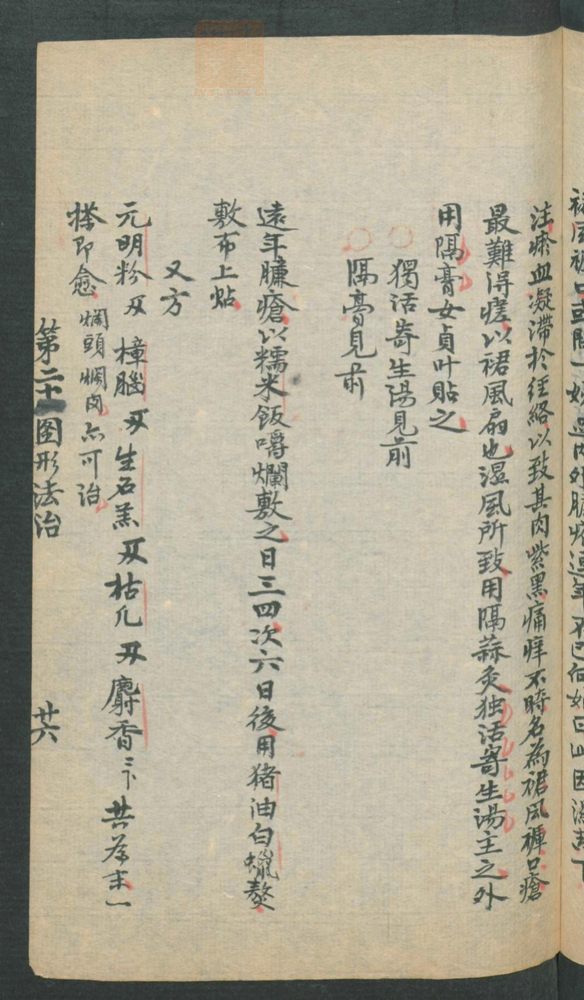 注瘀血凝滯於经絡以致其肉紫黑痛痒不時名為裙风褲口瘡
最難得瘥以裙風扇也濕風所致用隔蒜灸独活寄生湯主之外
用隔膏女貞叶貼之
獨活寄生湯見前
隔膏見前
遠年臁瘡以糯米飯嚼爛敷之日三四次六日後用猪油白蠟熬
敷布上贴
又方
元明粉 樟腦 生石羔 枯凡 麝香 共為末一
搽即愈 爛頭爛肉亦可治
第二十 图形法治
廿六